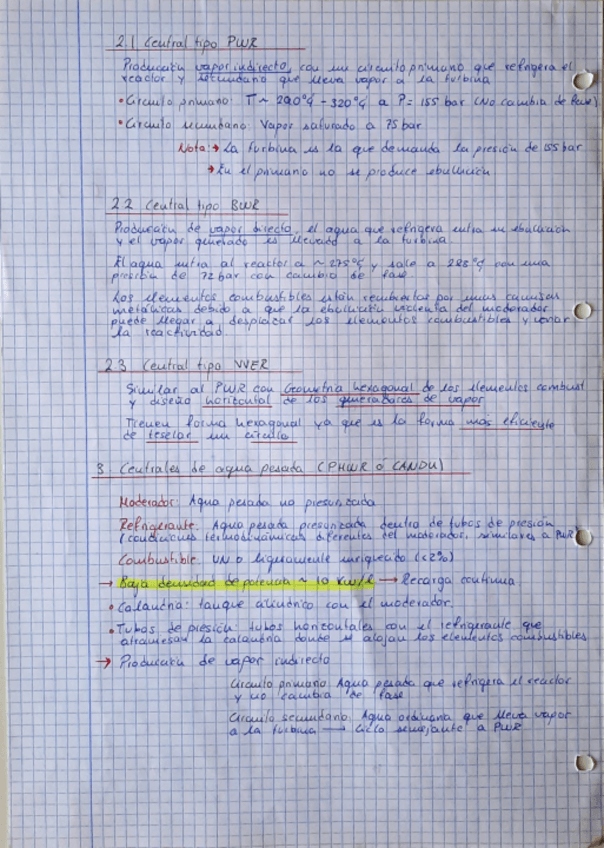 2.1 Central tipo PWR
Producción vapor indirecto, con un circuito primario que refrigera el
reactor y secundario que lleva vapor a la turbina
• Circuito primario: T ~ 290°C - 320°C a P = 155 bar (No cambia de fase)
• Circuito secundario: Vapor saturado a 75 bar
Nota: → La turbina es la que demanda la presión de 155 bar
→ En el primario no se produce ebullición
2.2 Central tipo BWR
Producción de vapor directo, el agua que refrigera entra en ebullición
y el vapor generado es llevado a la turbina.
El agua entra al reactor a ~ 275°C y sale a 288°C con una
presión de 72 bar con cambio de fase
Los elementos combustibles están recubiertos por unas camisas
metálicas debido a que la ebullición violenta del moderador
puede llegar a desplazar los elementos combustibles y variar
la reactividad
2.3 Central tipo VVER
Similar al PWR con geometría hexagonal de los elementos combust
y diseño horizontal de los generadores de vapor
Tienen forma hexagonal ya que es la forma más eficiente
de teselar un círculo
3. Centrales de agua pesada (PHWR ó CANDU)
Moderador: Agua pesada no presurizada
Refrigerante: Agua pesada presurizada dentro de tubos de presión
(condiciones termodinámicas diferentes del moderador, similares a PWR)
Combustible: UN o ligeramente enriquecido (<2%)
→ Baja densidad de potencia ~ 10 kW/l → Recarga continua.
• Calandria: tanque cilíndrico con el moderador.
• Tubos de presión: tubos horizontales con el refrigerante que
atraviesan la calandria donde se alojan los elementos combustibles
→ Producción de vapor indirecto
Circuito primario: Agua pesada que refrigera el reactor
y no cambia de fase
Circuito secundario: Agua ordinaria que lleva vapor
a la turbina → Ciclo semejante a PWR